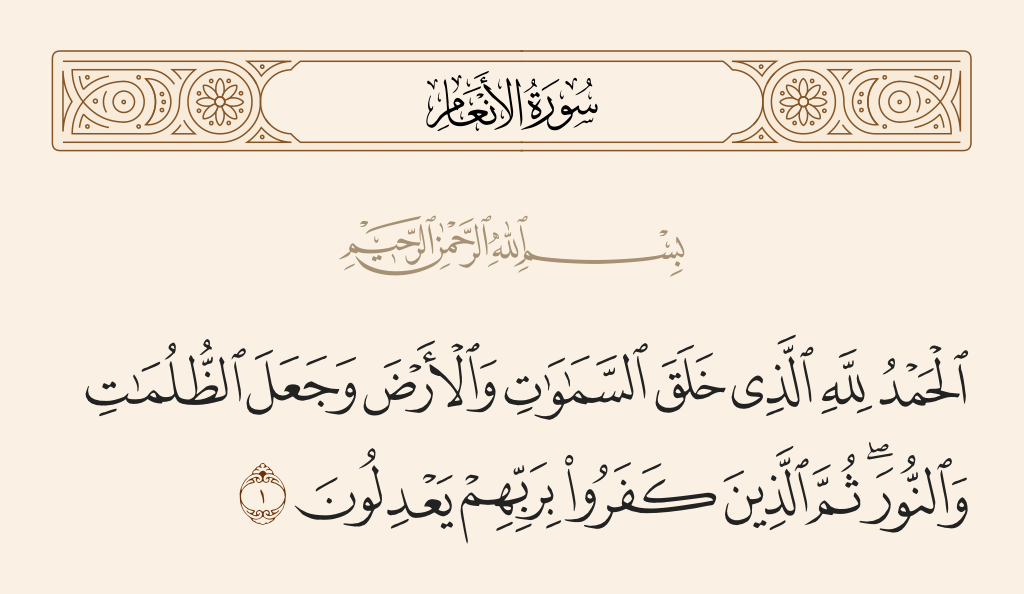 سُورَةُ الأَنْعَامِ
بِسْمِ ٱللَّهِ ٱلرَّحْمَٰنِ ٱلرَّحِيمِ
ٱلْحَمْدُ لِلَّهِ ٱلَّذِى خَلَقَ ٱلسَّمَٰوَٰتِ وَٱلْأَرْضَ وَجَعَلَ ٱلظُّلُمَٰتِ
وَٱلنُّورَ ۖ ثُمَّ ٱلَّذِينَ كَفَرُوا۟ بِرَبِّهِمْ يَعْدِلُونَ ١